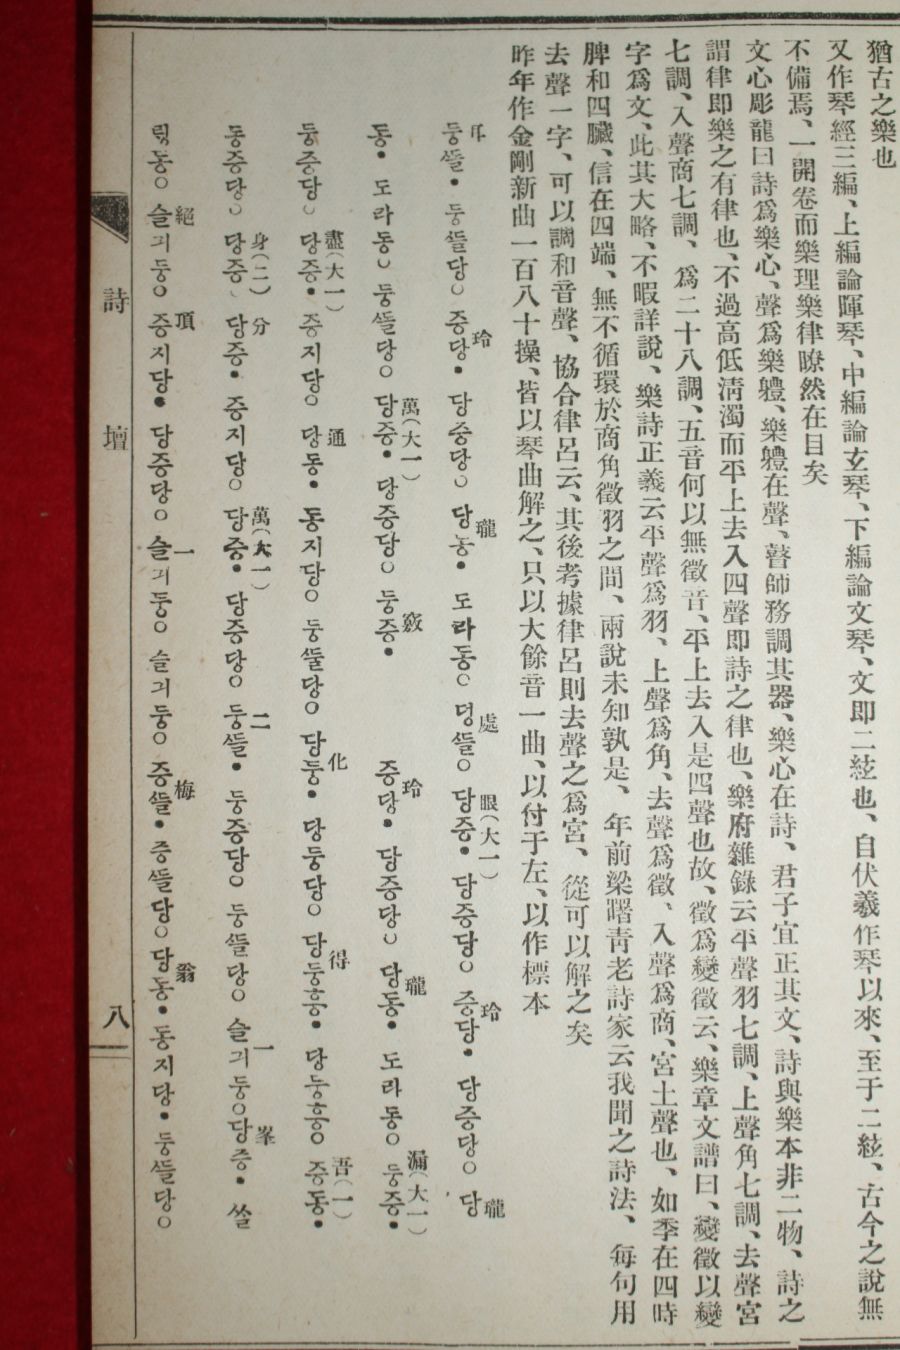 猶古之樂也
又作琴經三編、上編論暉琴、中編論玄琴、下編論文琴、文即二絃也、自伏羲作琴以來、至于二絃、古今之說無
不備焉、一開卷而樂理樂律瞭然在目矣
文心彫龍曰詩爲樂心、聲爲樂軆、樂軆在聲、瞽師務調其器、樂心在詩、君子宜正其文、詩與樂本非二物、詩之
謂律即樂之有律也、不過高低淸濁而平上去入四聲即詩之律也、樂府雜錄云平聲羽七調、上聲角七調、去聲宮
七調、入聲商七調、爲二十八調、五音何以無徵音、平上去入是四聲也故、徵爲變徵云、樂章文譜曰、變徵以變
字爲文、此其大略、不暇詳說、樂詩正義云平聲爲羽、上聲爲角、去聲爲徵、入聲爲商、宮土聲也、如季在四時
脾和四臟、信在四端、無不循環於商角徵羽之間、兩說未知孰是、年前梁曙靑老詩家云我聞之詩法、每句用
去聲一字、可以調和音聲、協合律呂云、其後考據律呂則去聲之爲宮、從可以解之矣
昨年作金剛新曲一百八十操、皆以琴曲解之、只以大餘音一曲、以付于左、以作標本
둥뜰• 둥뜰당○ 증당• 당중당○ 당동• 도라동○ 덩뜰○ 당증• 당증당○ 증당• 당증당○ 당
玲 瓏 處 眼(大一) 玲 瓏
동• 도라동○ 둥뜰당○ 당증• 당증당○ 둥증• 증당• 당증당○ 당동• 도라동○ 둥증•
萬(大一) 竅 玲 瓏 漏(大一)
둥증당○ 당증• 증지당○ 당동• 동지당○ 둥뜰당○ 당둥• 당둥당○ 당둥흥• 당둥흥○ 증동•
盡(大一) 通 化 得 吾(一)
동증당○ 당증 당증• 증지당○ 당증• 당증당○ 둥뜰• 둥증당○ 둥뜰당○ 슬기둥○ 당증• 쌀
身(二) 分 萬(大一) 二 一 峯
동○ 슬기둥○ 증지당• 당증당○ 슬기둥○ 슬기둥○ 증뜰• 증뜰당○ 당동• 동지당• 둥뜰당○
絕 項 一 梅 翁
詩壇
八